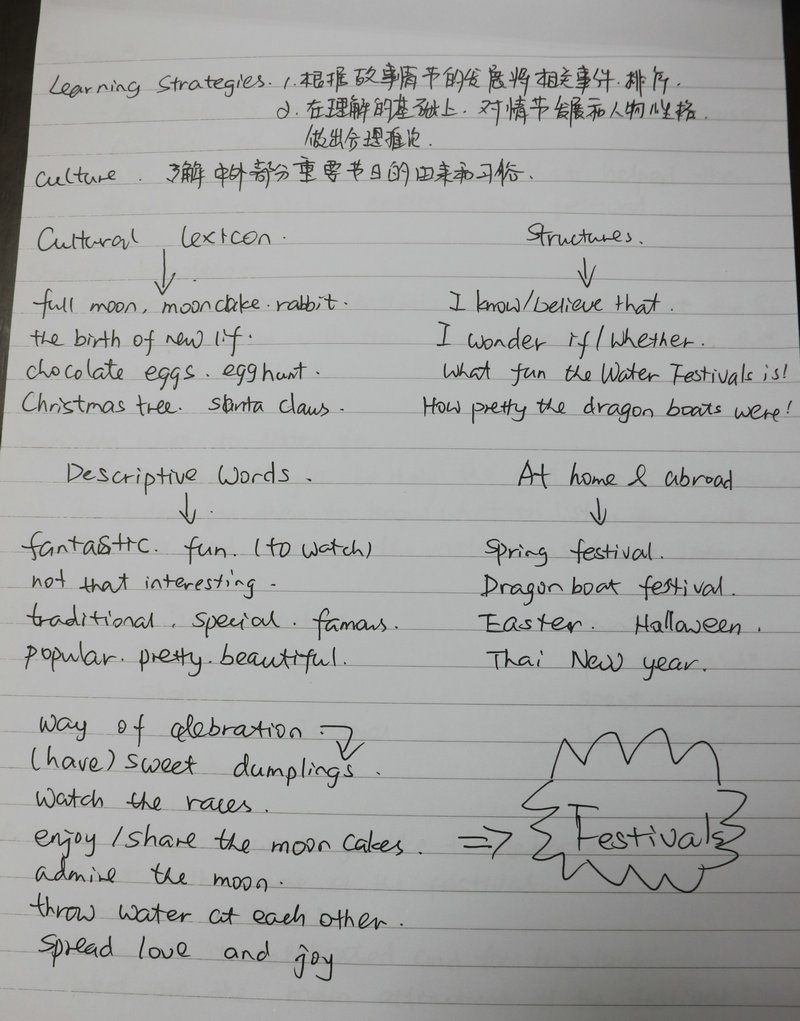 Learning Strategies. 1. 根据故事情节的发展将相关事件.排序.
2. 在理解的基础上. 对情节发展和人物性格.
做出合理推论.
Culture. 了解中外部分重要节日的由来和习俗.
Cultural lexicon.
full moon, mooncake. rabbit.
the birth of new lif.
chocolate eggs. egg hunt.
Christmas tree. santa claus.
Structures.
I know/believe that.
I wonder if/whether.
What fun the Water Festivals is!
How pretty the dragon boats were!
Descriptive Words.
fantastic. fun. (to watch)
not that interesting.
traditional. special. famous.
popular. pretty. beautiful.
At home & abroad
Spring festival.
Dragon boat festival.
Easter. Halloween.
Thai New year.
way of celebration.
(have) sweet dumplings.
watch the races.
enjoy/share the moon cakes.
admire the moon.
throw water at each other.
spread love and joy
=> Festivals